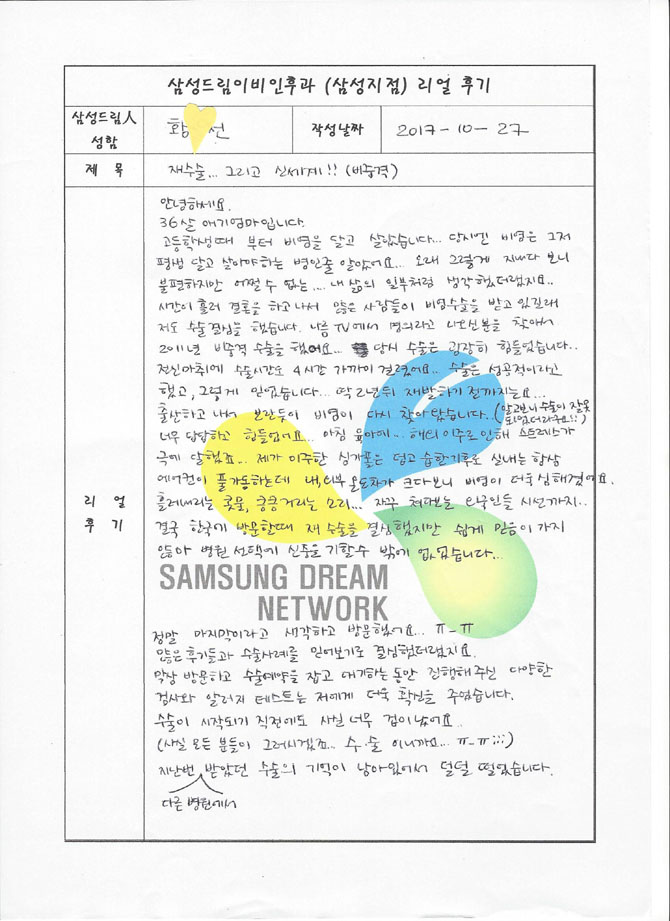 삼성드림이비인후과 (삼성지점) 리얼 후기
삼성드림人 성함
황 선
작성날짜
2017-10-27
제 목
재수술... 그리고 신세계!! (비중격)
리 얼
후 기
안녕하세요.
36살 애기엄마입니다.
고등학생때 부터 비염을 달고 살았습니다... 당시엔 비염은 그저
평생 달고 살아야하는 병인줄 알았어요... 오래 그렇게 지내다 보니
불편하지만 어쩔 수 없는.... 내 삶의 일부처럼 생각했더랬지요..
시간이 흘러 결혼을 하고나서 많은 사람들이 비염수술을 받고 있길래
저도 수술결심을 했습니다. 나름 TV에서 명의라고 나오신분을 찾아서
2011년 비중격 수술을 했어요... 당시 수술은 굉장히 힘들었습니다..
전신마취에 수술시간도 4시간 가까이 걸렸어요.. 수술은 성공적이라고
했고, 그렇게 믿었습니다... 딱 2년뒤 재발하기 전까지는요...
출산하고 나서 보란듯이 비염이 다시 찾아왔습니다.. (알고보니 수술이 잘못
되었더라구요!!)
너무 답답하고 힘들었어요... 아침 육아에... 해외이주로 인해 스트레스가
극에 달했죠... 제가 이주한 싱가폴은 덥고 습한기후로 실내는 항상
에어컨이 풀가동하는데 내,외부 온도차가 크다보니 비염이 더욱 심해졌어요.
흘러내리는 콧물, 킁킁거리는 소리... 자꾸 쳐다보는 외국인들 시선까지..
결국 한국에 방문할때 재 수술을 결심했지만 쉽게 믿음이 가지
않아 병원 선택에 신중을 기할수 밖에 없었습니다...
SAMSUNG DREAM
NETWORK
정말 마지막이라고 생각하고 방문했어요... ㅠ_ㅠ
많은 후기들과 수술사례를 믿어보기로 결심했더랬지요.
막상 방문하고 수술예약을 잡고 대기하는 동안 진행해주신 다양한
검사와 알러지 테스트는 저에게 더욱 확신을 주었습니다.
수술이 시작되기 직전에도 사실 너무 겁이났어요..
(사실 모든 분들이 그러시겠죠... 수.술 이니까요... ㅠ_ㅠ;;;)
지난번 받았던 수술의 기억이 남아있어서 덜덜 떨었습니다.
다른 병원에서